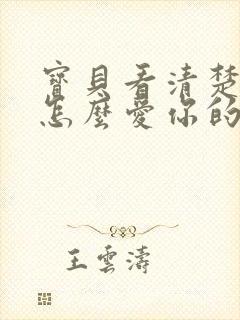 寶貝看清楚
怎麼愛你的
王雲濤